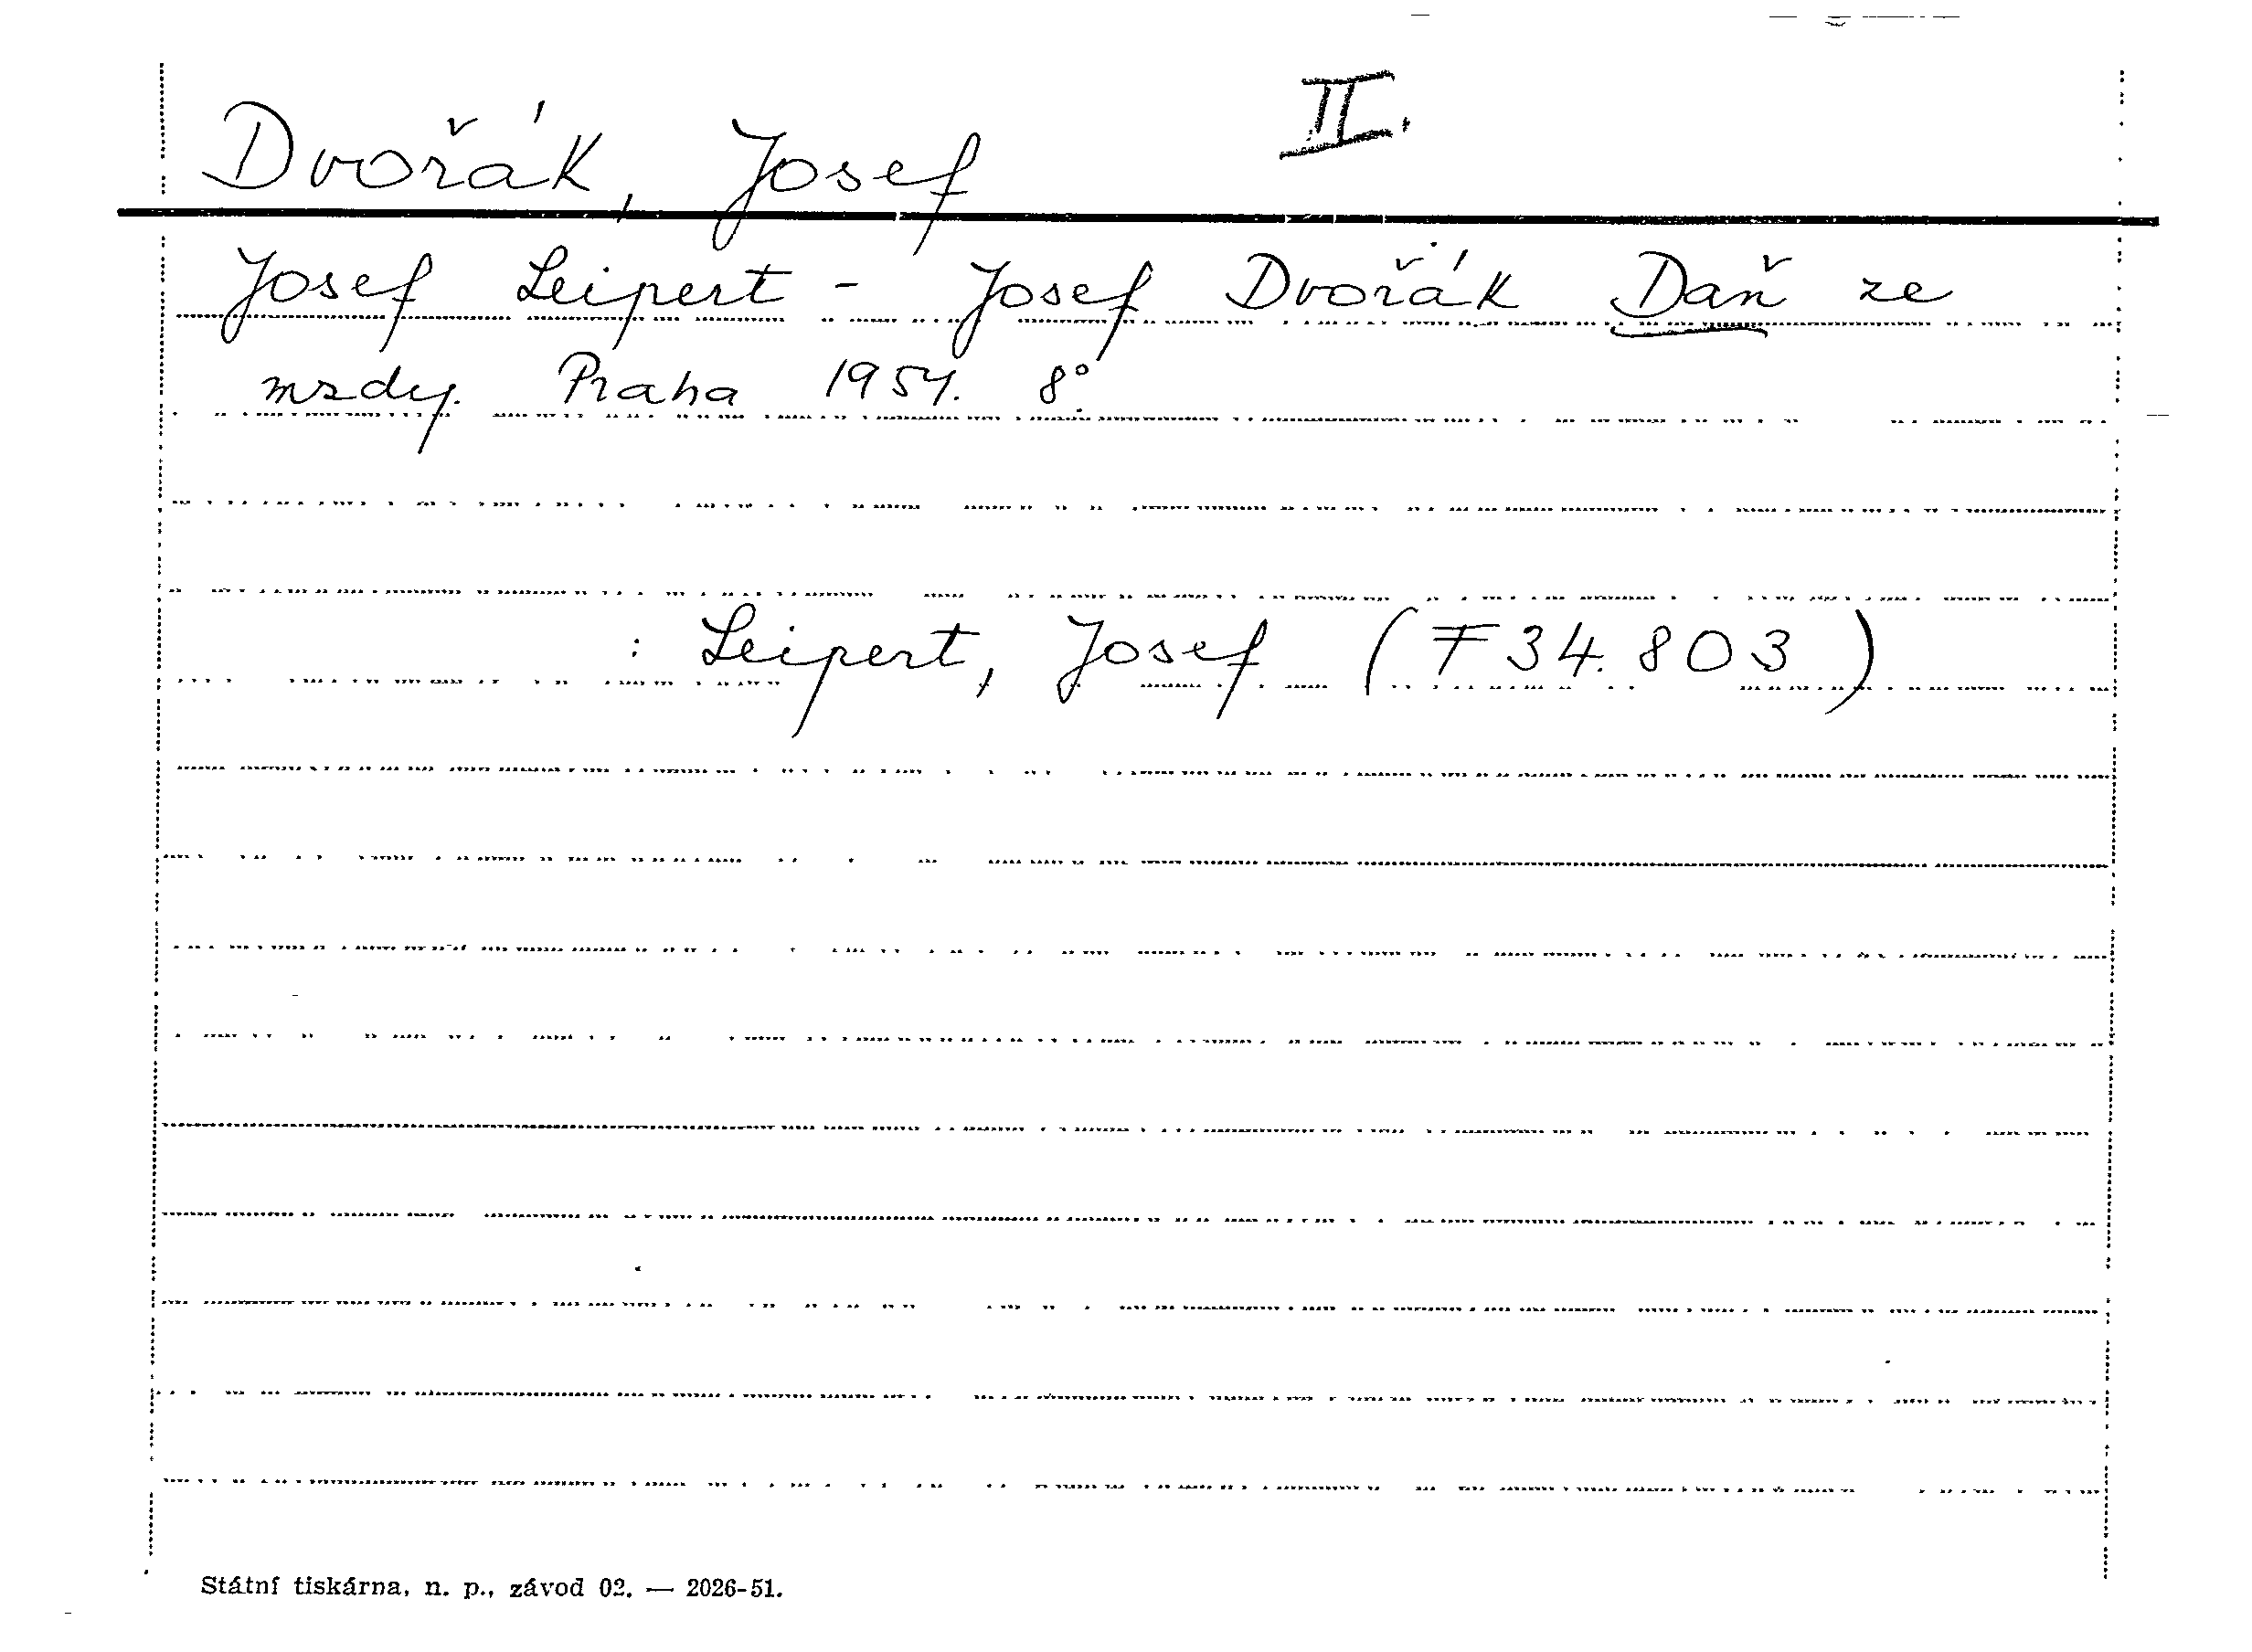 II.
Dvořák, Josef
Josef Leipert - Josef Dvořák Daň ze
mzdy. Praha 1954. 8°.
: Leipert, Josef (F 34.803)
Státní tiskárna, n. p., závod 02. — 2026-51.